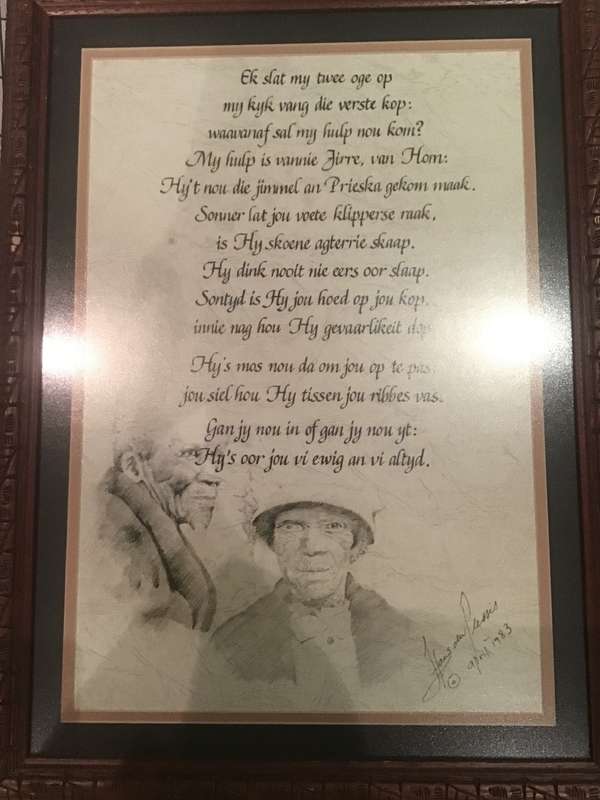 Ek slat my twee oge op
my kyk vang die verste kop:
waavanaf sal my hulp nou kom?
My hulp is vannie Jirre, van Hom:
Hy't nou die jimmel an Prieska gekom maak.
Sonner lat jou voete klipperse raak,
is Hy skoene agterrie skaap.
Hy dink nooit nie eers oor slaap.
Sontyd is Hy jou hoed op jou kop,
innie nag hou Hy gevaarlikeit dop
Hy's mos nou da om jou op te pas:
jou siel hou Hy tissen jou ribbes vas.
Gan jy nou in of gan jy nou yt:
Hy's oor jou vi ewig an vi altyd.
Hans du Plessis
© april 1983